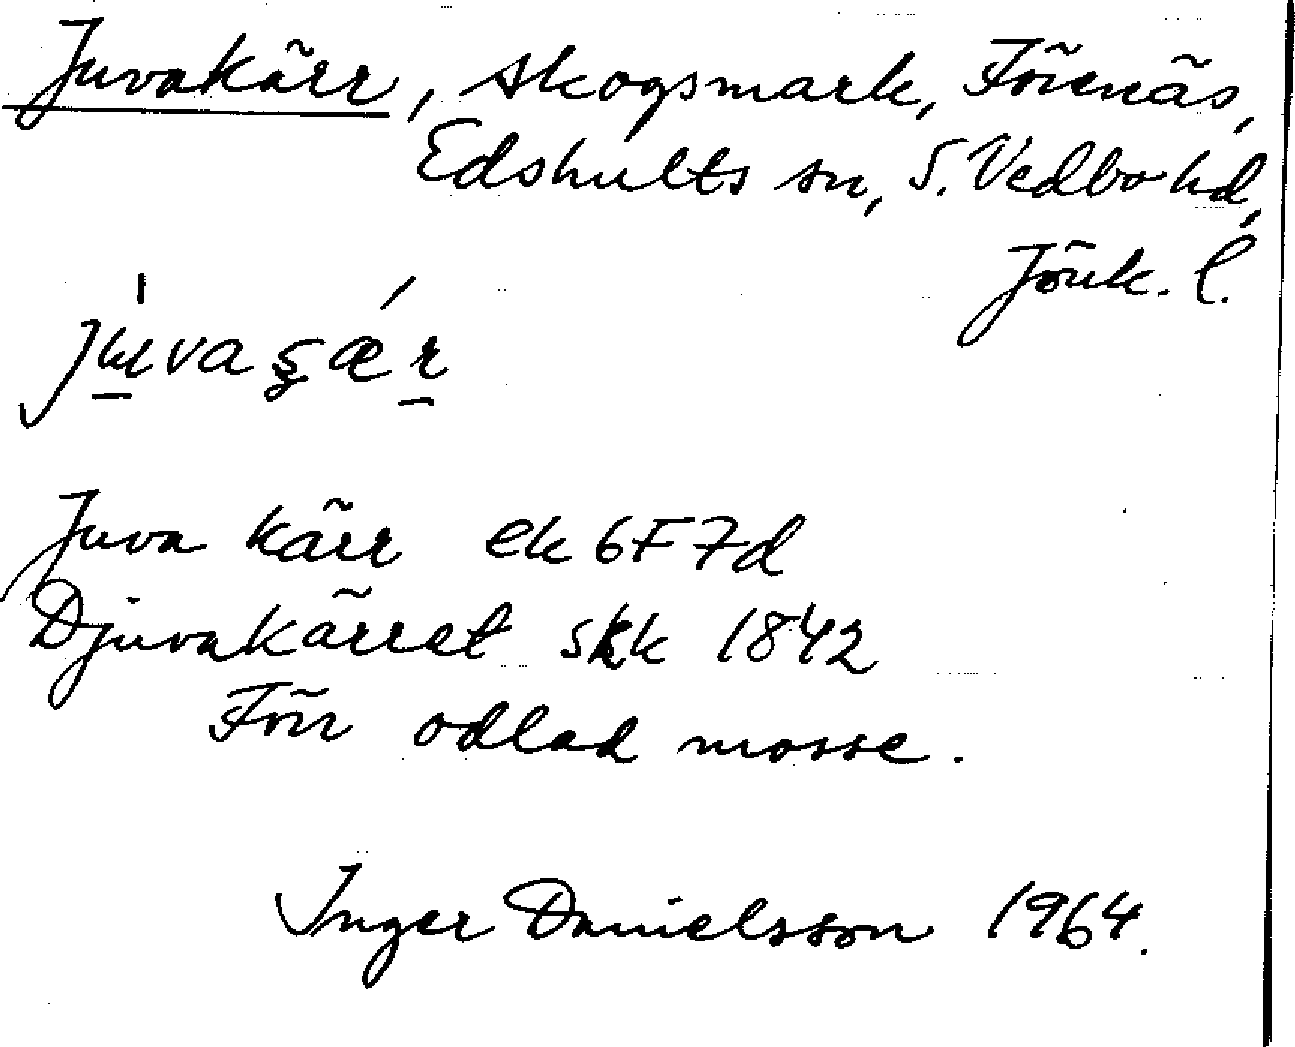 Juvakärr, skogsmark, Förenäs,
Edshults sn, S. Vedbo hd,
Jönk. l.
Juva kärr ek 6F7d
Djuvakärret skk 1842
Förr odlad mosse.
Inger Danielsson 1964.